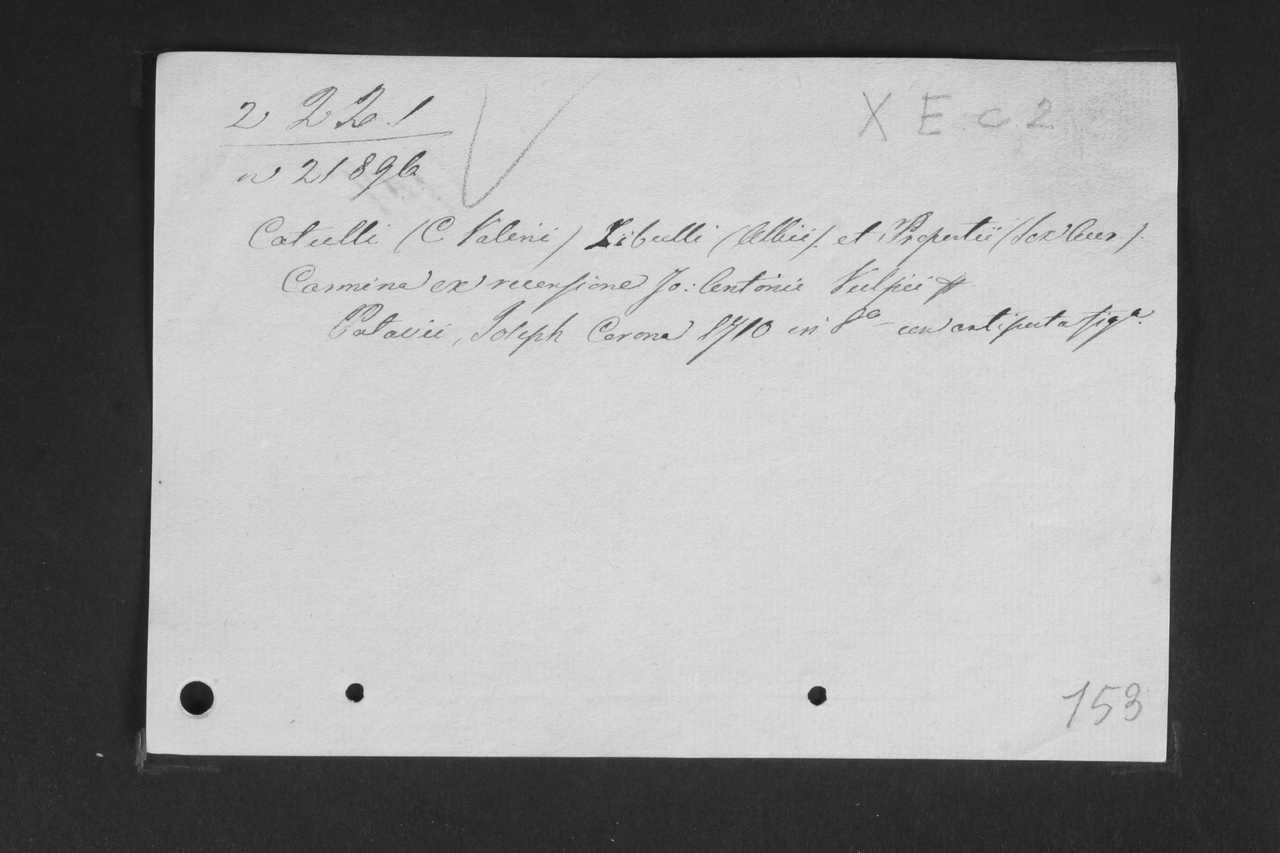 2 22.1
X E c 2
n 21896
Catulli (C Valerii) Tibulli (Albii). et Propertii (Sex. Aur.).
Carmina ex recensione Jo: Antonii Vulpii #
Patavii, Joseph Corona 1710 in 8° con antiporta figa.
153